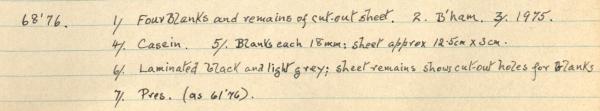 68'76. 1/ Four Blanks and remains of cut-out sheet. 2. B'ham. 3/. 1975.
4/. Casein. 5/. Blanks each 18mm; sheet approx 12·5cm x 3cm.
6/. Laminated black and light grey; sheet remains shows cut-out holes for Blanks
7/. Pres. (as 61'76).